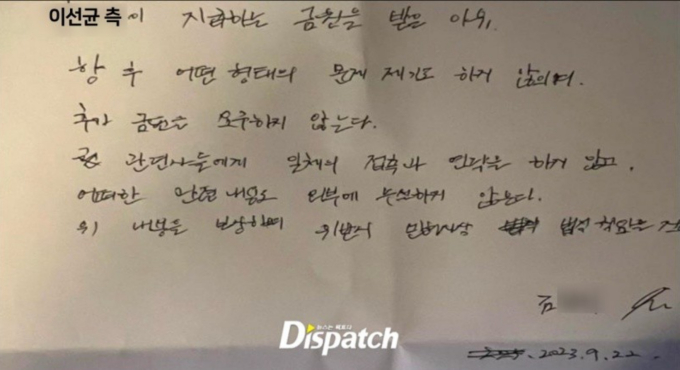 이선균 측이 지급하는 금원을 받은 이후,
향후 어떤 형태의 문제 제기도 하지 않으며,
추가 금원은 요구하지 않는다.
관련사들에게 일체의 접촉과 연락을 하지 않고,
어떠한 관련 내용도 외부에 누설하지 않는다.
위 내용을 보상하며 위반시 민형사상 법적 책임은
김
뉴스는 팩트다
Dispatch
2023.9.22.